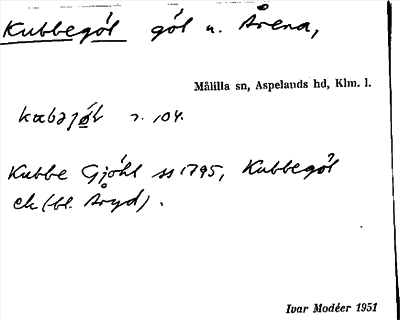 Kubbegöl göl n. Årena,
Målilla sn, Aspelands hd, Klm. l.
kɑbəjø̨l r. 104.
Kubbe Gjöhl ss 1795, Kubbegöl
ek (bl. Åryd).
Ivar Modéer 1951